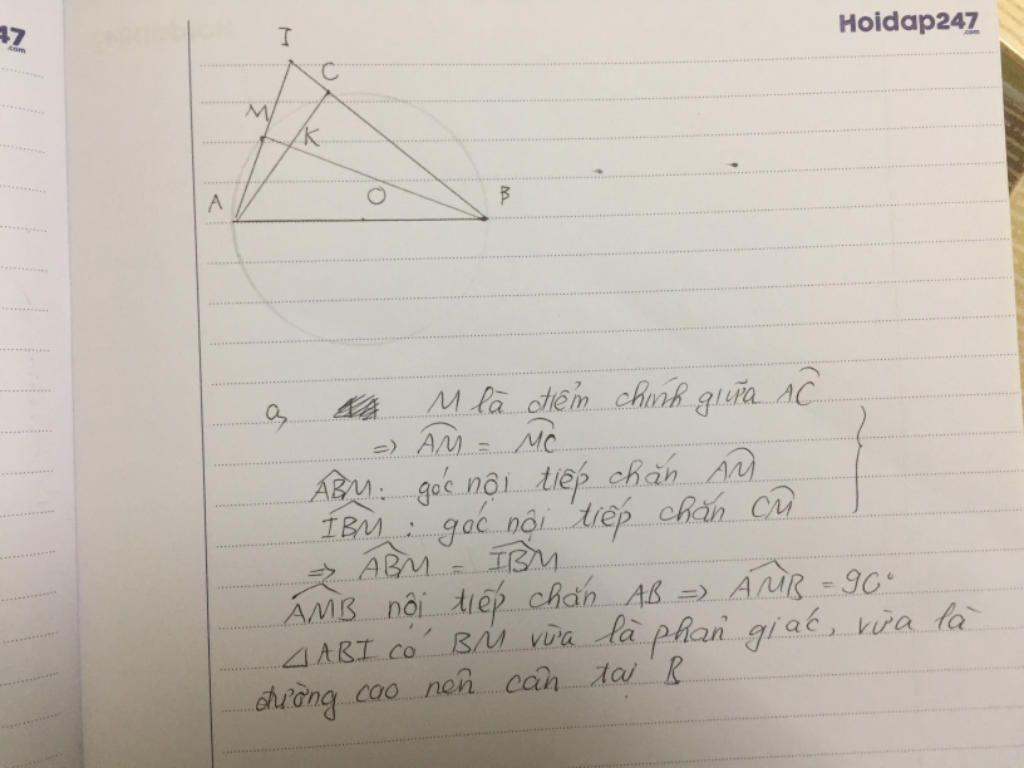 47
.com
Hoidap247
.com
I
C
M
K
A
O
B
a, M là điểm chính giữa AC
=> AM = MC
ABM: góc nội tiếp chắn AM
IBM: góc nội tiếp chắn CM
=> ABM = IBM
AMB nội tiếp chắn AB => AMB = 90°
△ABI có BM vừa là phân giác, vừa là
đường cao nên cân tại B